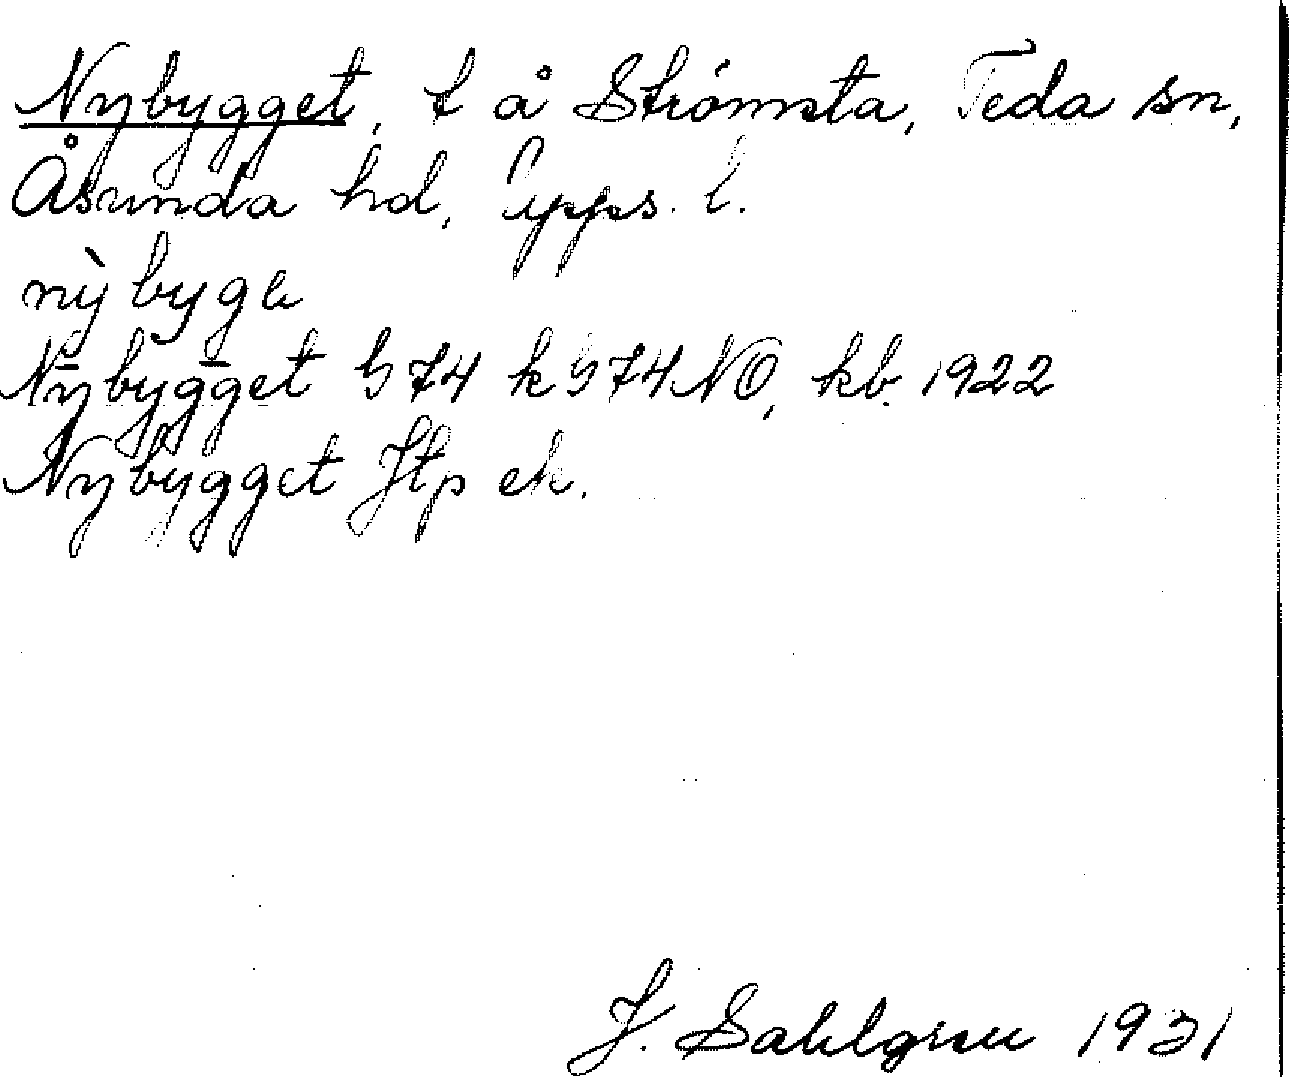 Nybygget, t å Strömsta, Teda sn,
Åsunda hd, Upps. l.
nỳbyge
Nybygget G74 k G74NO, kb. 1922
Nybygget Jtp ek.
J. Sahlgren 1931